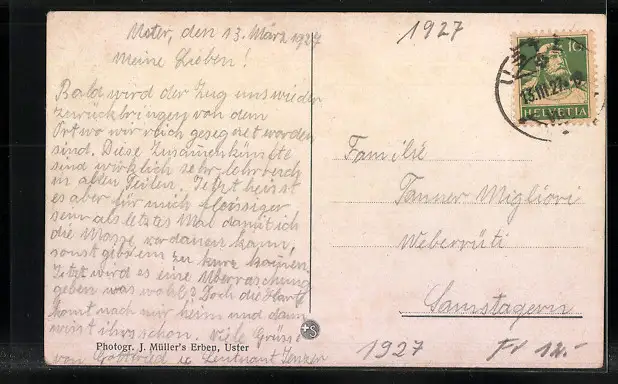 Uster, den 13. März 1927
Meine Lieben!
Bald wird der Zug uns wieder
zurückbringen von dem
Ort wo wir reich gesegnet worden
sind. Diese Zusammenkünfte
sind wirklich sehr lehrreich
in allen Teilen. Jetzt heisst
es aber für mich fleissiger
sein als letztes Mal damit ich
die Masse verdauen kann,
sonst gebe ein zu kurz kommen.
Jetzt wird es eine Überraschung
geben was wohl? Doch die Karte
komt nach mir heim und dann
wisst ihrs schon. Viele Grüsse
von Gottfried &
Photogr. J. Müller's Erben, Uster
+S
1927
10
13.III.27
HELVETIA
Familie
Tanner Migliori
Weberrüti
Samstagern
1927
Fr 12.-